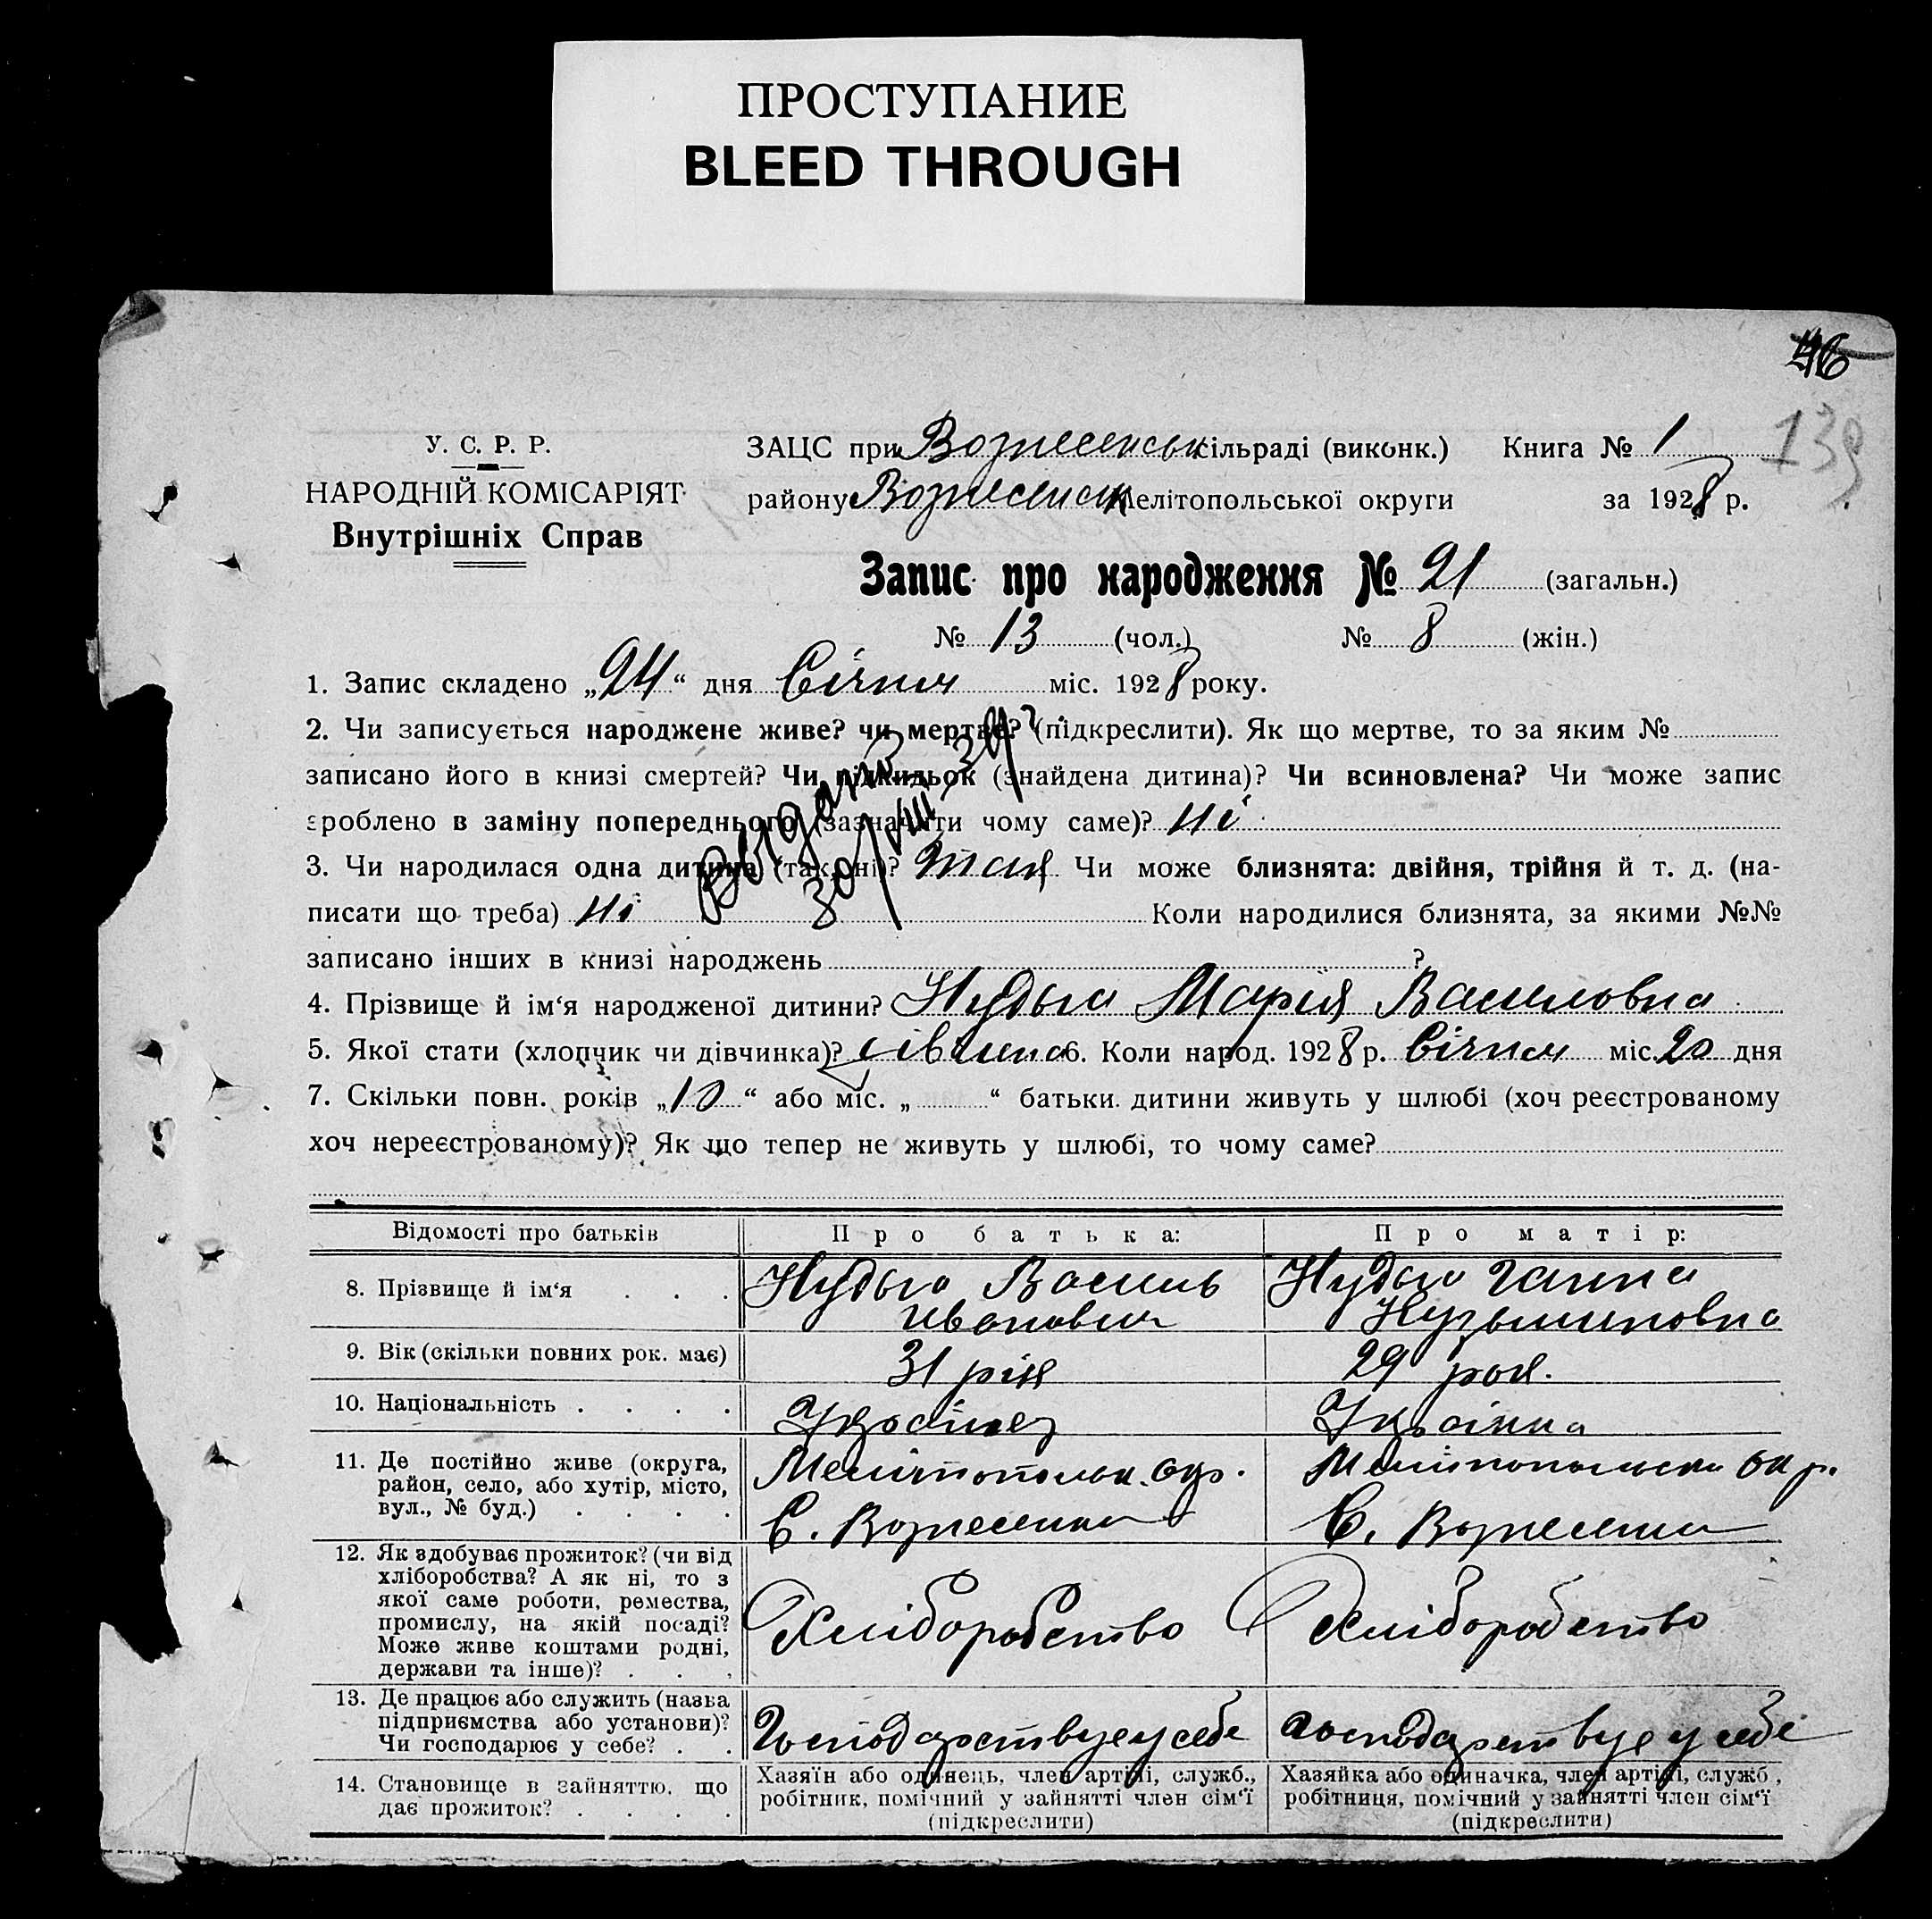 ПРОСТУПАНИЕ
BLEED THROUGH
46
139
У. С. Р. Р.
НАРОДНІЙ КОМІСАРІЯТ
Внутрішніх Справ
ЗАЦС при Вознесенськ сільраді (виконк.) Книга № 1
району Вознесенськ Мелітопольської округи за 1928 р.
Запис про народження № 21 (загальн.)
№ 13 (чол.) № 8 (жін.)
1. Запис складено „24“ дня Січня міс. 1928 року.
2. Чи записується народжене живе? чи мертве? (підкреслити). Як що мертве, то за яким №
записано його в книзі смертей? Чи підкидьок (знайдена дитина)? Чи всиновлена? Чи може запис
зроблено в заміну попереднього (зазначити чому саме)? ні
3. Чи народилася одна дитина (так, ні)? так Чи може близнята: двійня, трійня й т. д. (на-
писати що треба) ні Коли народилися близнята, за якими №№
записано інших в книзі народжень ?
Выдано
30/VIII 39
4. Прізвище й ім‘я народженої дитини? Нудьга Марія Василовна
5. Якої стати (хлопчик чи дівчинка)? дівчина 6. Коли народ. 1928 р. Січня міс. 20 дня
7. Скільки повн. років „10“ або міс. „ “ батьки дитини живуть у шлюбі (хоч реєстрованому
хоч нереєстрованому)? Як що тепер не живуть у шлюбі, то чому саме?
Відомості про батьків Про батька: Про матір:
8. Прізвище й ім‘я . . . Нудьга Василь Нудьга Ганна
Иванович Кузьминовна
9. Вік (скільки повних рок. має) 31 рік 29 рок.
10. Національність . . . . Українец Українка
11. Де постійно живе (округа, Мелітопольск. окр. Мелітопольська окр.
район, село, або хутір, місто,
вул., № буд.) . . . . С. Вознесенка С. Вознесенка
12. Як здобуває прожиток? (чи від
хліборобства? А як ні, то з
якої саме роботи, ремества,
промислу, на якій посаді? Хліборобство Хліборобство
Може живе коштами родні,
держави та інше)? . . .
13. Де працює або служить (назва
підприємства або установи)? Господарствує у себе господарствує у себе
Чи господарює у себе? . .
14. Становище в зайняттю, що Хазяїн або одинець, член артілі, служб., Хазяйка або одиначка, член артілі, служб.,
дає прожиток? . . . . робітник, помічний у зайнятті член сім‘ї робітниця, помічний у зайнятті член сім‘ї
(підкреслити) (підкреслити)